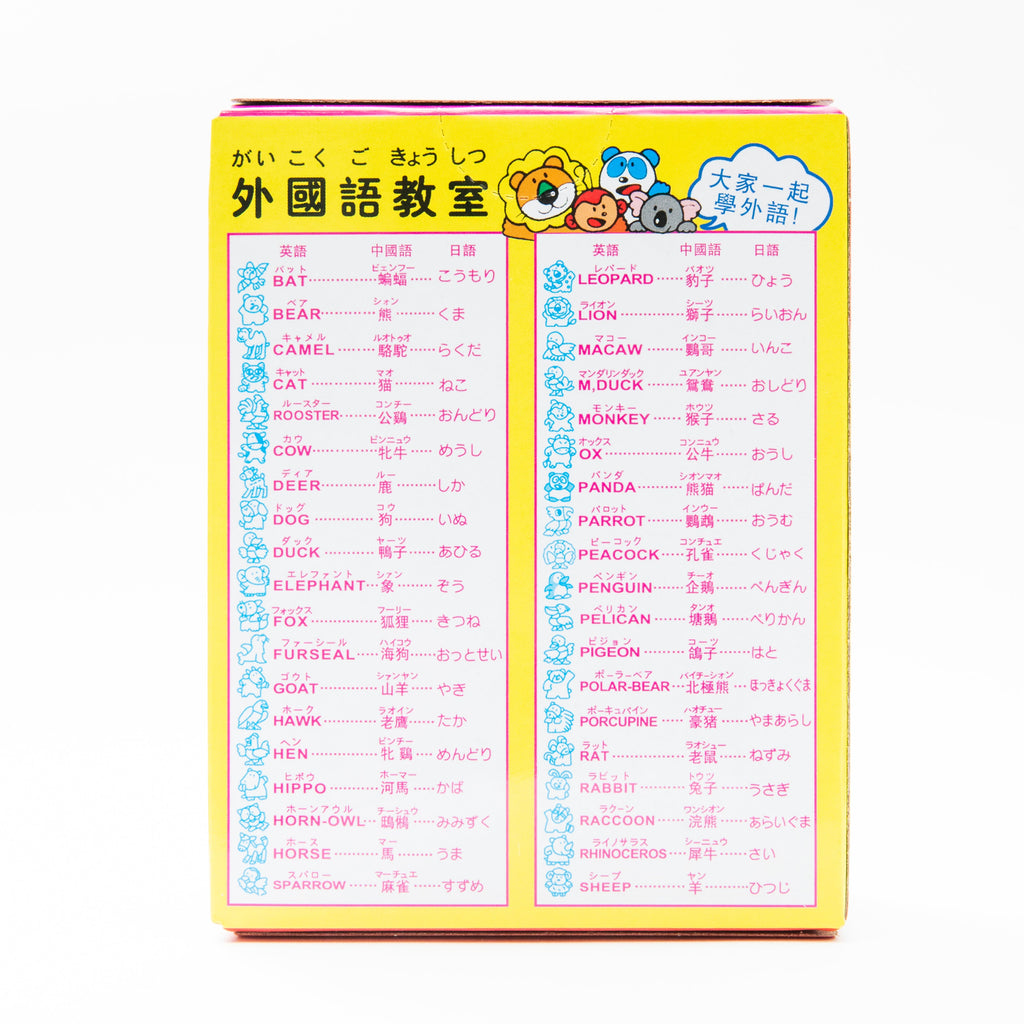 がいこくごきょうしつ
外國語教室
大家一起
學外語!
英語 中國語 日語
バット ビェンフー
BAT 蝙蝠 こうもり
ベア ション
BEAR 熊 くま
キャメル ルオトゥオ
CAMEL 駱駝 らくだ
キャット マオ
CAT 猫 ねこ
ルースター コンチー
ROOSTER 公鷄 おんどり
カウ ピンニュウ
COW 牝牛 めうし
ディア ルー
DEER 鹿 しか
ドッグ コウ
DOG 狗 いぬ
ダック ヤーツ
DUCK 鴨子 あひる
エレファント シァン
ELEPHANT 象 ぞう
フォックス フーリー
FOX 狐狸 きつね
ファーシール ハイコウ
FURSEAL 海狗 おっとせい
ゴウト シァンヤン
GOAT 山羊 やぎ
ホーク ラオイン
HAWK 老鷹 たか
ヘン ピンチー
HEN 牝鷄 めんどり
ヒポウ ホーマー
HIPPO 河馬 かば
ホーンアウル チーシュウ
HORN-OWL 鴟鵂 みみずく
ホース マー
HORSE 馬 うま
スパロー マーチュエ
SPARROW 麻雀 すずめ
英語 中國語 日語
レパード パオツ
LEOPARD 豹子 ひょう
ライオン シーツ
LION 獅子 らいおん
マコー インコー
MACAW 鸚哥 いんこ
マンダリンダック ユアンヤン
M,DUCK 鴛鴦 おしどり
モンキー ホウツ
MONKEY 猴子 さる
オックス コンニュウ
OX 公牛 おうし
パンダ シオンマオ
PANDA 熊猫 ぱんだ
パロット インウー
PARROT 鸚鵡 おうむ
ピーコック コンチュエ
PEACOCK 孔雀 くじゃく
ペンギン チーオ
PENGUIN 企鵝 ぺんぎん
ペリカン タンオ
PELICAN 塘鵝 ぺりかん
ピジョン コーツ
PIGEON 鴿子 はと
ポーラーベア パイチーシオン
POLAR-BEAR 北極熊 ほっきょくぐま
ポーキュパイン ハオチュー
PORCUPINE 豪猪 やまあらし
ラット ラオシュー
RAT 老鼠 ねずみ
ラビット トウツ
RABBIT 兔子 うさぎ
ラクーン ワンシオン
RACCOON 浣熊 あらいぐま
ライノサラス シーニュウ
RHINOCEROS 犀牛 さい
シープ ヤン
SHEEP 羊 ひつじ